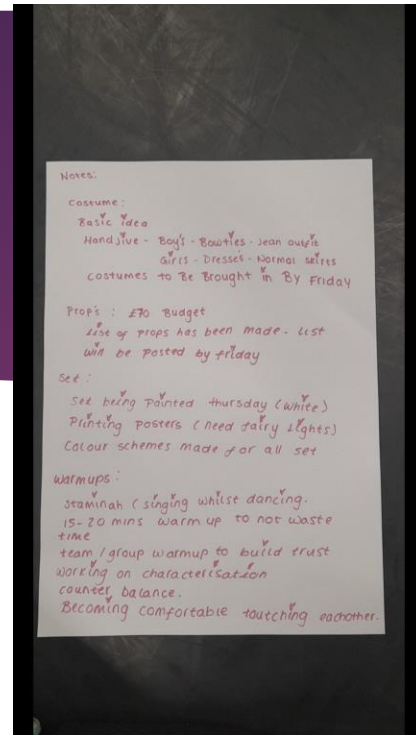 Notes:
Costume:
Basic idea
Handjive - Boy's - Bowties - Jean outfit
Girls - Dresses - Normal skirts
costumes to Be Brought in By Friday
Prop's : £70 Budget
List of props has been made - List
will be posted by friday
Set :
Set being painted thursday (white)
Printing posters (need fairy lights)
Colour schemes made for all set
Warmups :
Staminah (singing whilst dancing.
15-20 mins warm up to not waste
time
team / group warmup to build trust
working on characterisation
counter balance.
Becoming comfortable toutching eachother.